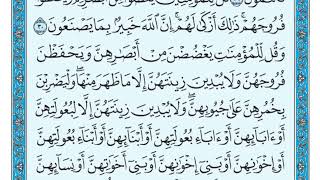 فُرُوجَهُمْ ذَٰلِكَ أَزْكَىٰ لَهُمْ إِنَّ ٱللَّهَ خَبِيرٌۢ بِمَا يَصْنَعُونَ ٣٠
وَقُل لِّلْمُؤْمِنَٰتِ يَغْضُضْنَ مِنْ أَبْصَٰرِهِنَّ وَيَحْفَظْنَ
فُرُوجَهُنَّ وَلَا يُبْدِينَ زِينَتَهُنَّ إِلَّا مَا ظَهَرَ مِنْهَا وَلْيَضْرِبْنَ
بِخُمُرِهِنَّ عَلَىٰ جُيُوبِهِنَّ وَلَا يُبْدِينَ زِينَتَهُنَّ إِلَّا لِبُعُولَتِهِنَّ
أَوْ ءَابَآئِهِنَّ أَوْ ءَابَآءِ بُعُولَتِهِنَّ أَوْ أَبْنَآئِهِنَّ أَوْ أَبْنَآءِ بُعُولَتِهِنَّ
أَوْ إِخْوَٰنِهِنَّ أَوْ بَنِىٓ إِخْوَٰنِهِنَّ أَوْ بَنِىٓ أَخَوَٰتِهِنَّ أَوْ نِسَآئِهِنَّ